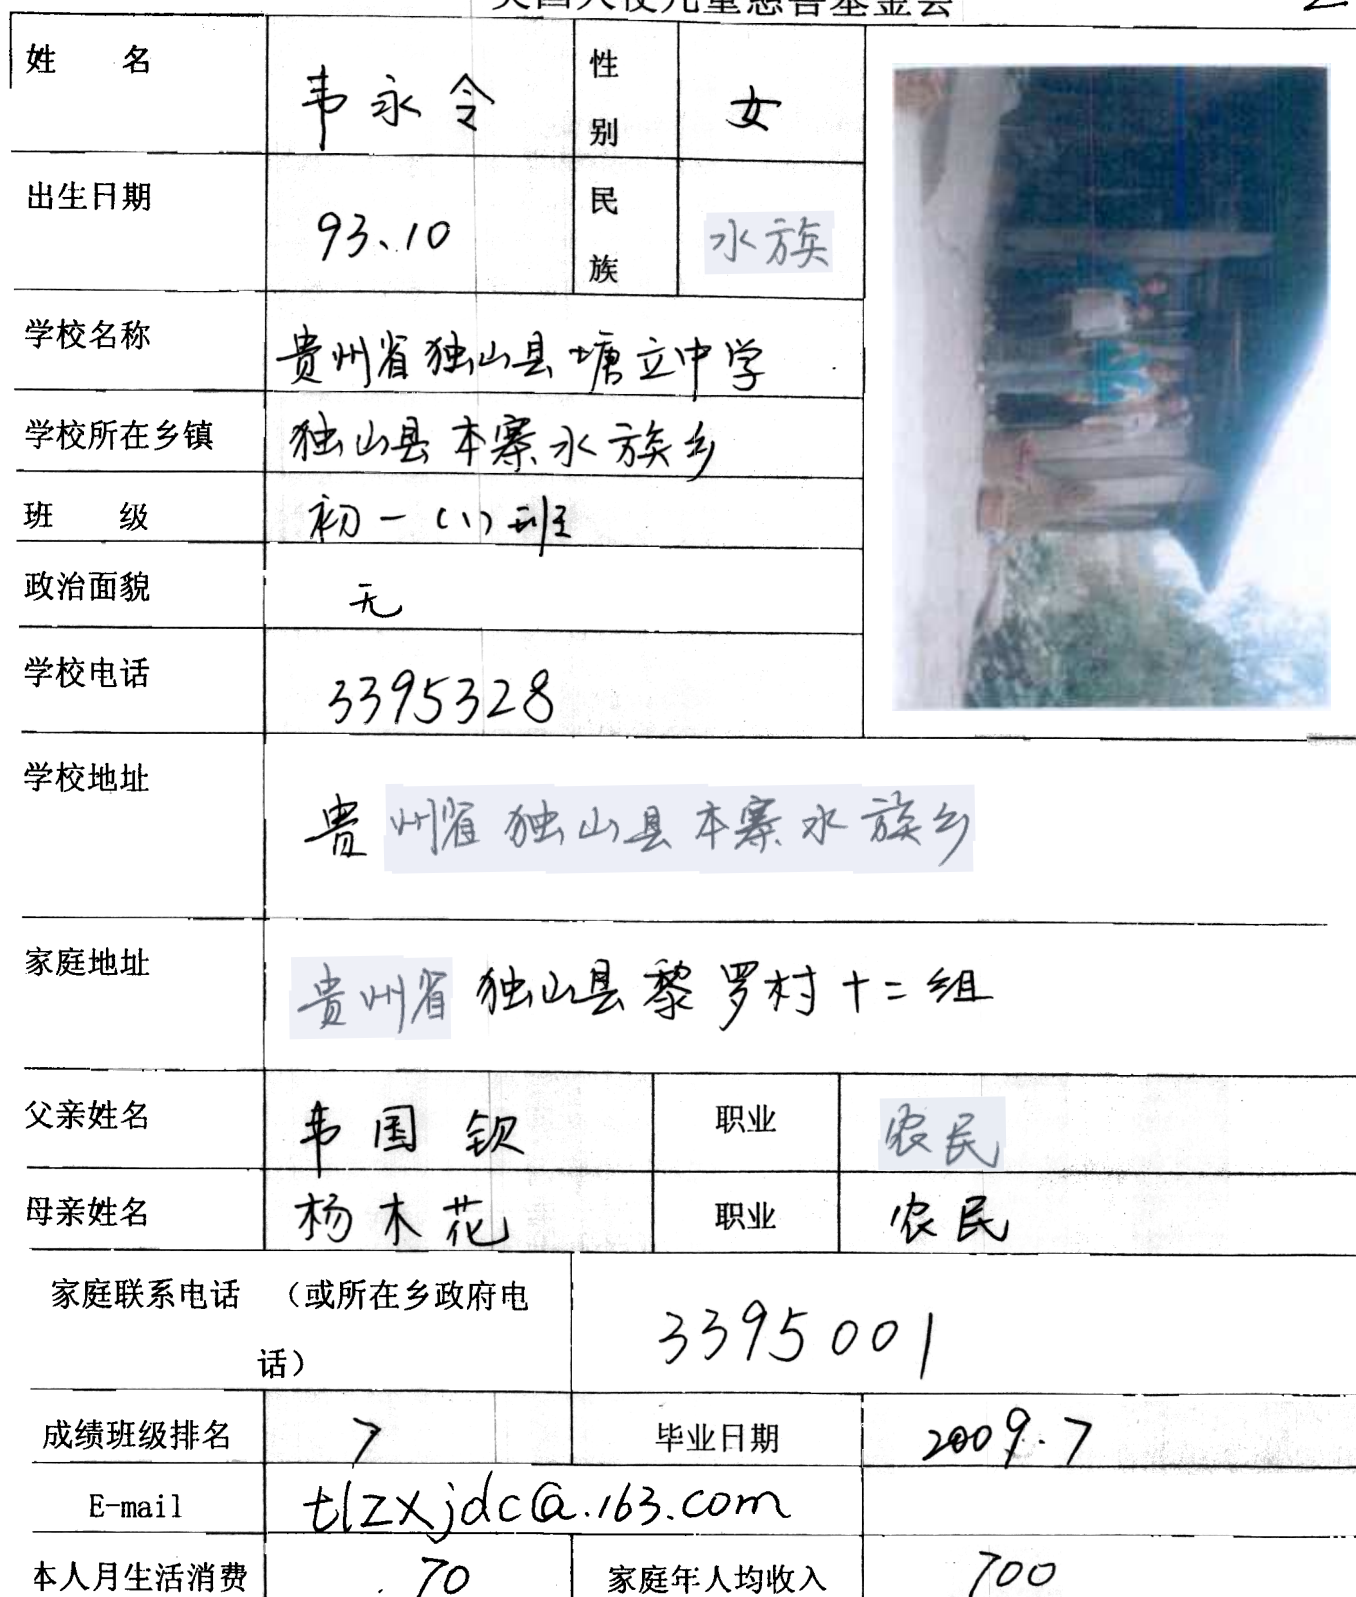 姓 名 韦永令 性别 女
出生日期 93、10 民族 水族
学校名称 贵州省独山县塘立中学
学校所在乡镇 独山县本寨水族乡
班 级 初一(1)班
政治面貌 无
学校电话 3395328
学校地址 贵州省独山县本寨水族乡
家庭地址 贵州省独山县黎罗村十二组
父亲姓名 韦国钦 职业 农民
母亲姓名 杨木花 职业 农民
家庭联系电话 （或所在乡政府电
话） 3395001
成绩班级排名 7 毕业日期 2009.7
E-mail tlzxjdc@.163.com
本人月生活消费 70 家庭年人均收入 700